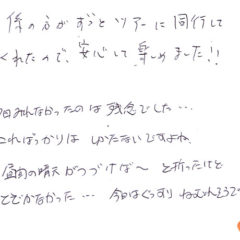 係の方がずっとツアーに同行して
くれたので、安心して楽しめました!!
今日みれなかったのは残念でした…
こればっかりは しかたないですよね
昼間の晴天がつづけば〜 と祈ったけど
とどかなかった… 今日はぐっすり ねむれそうで